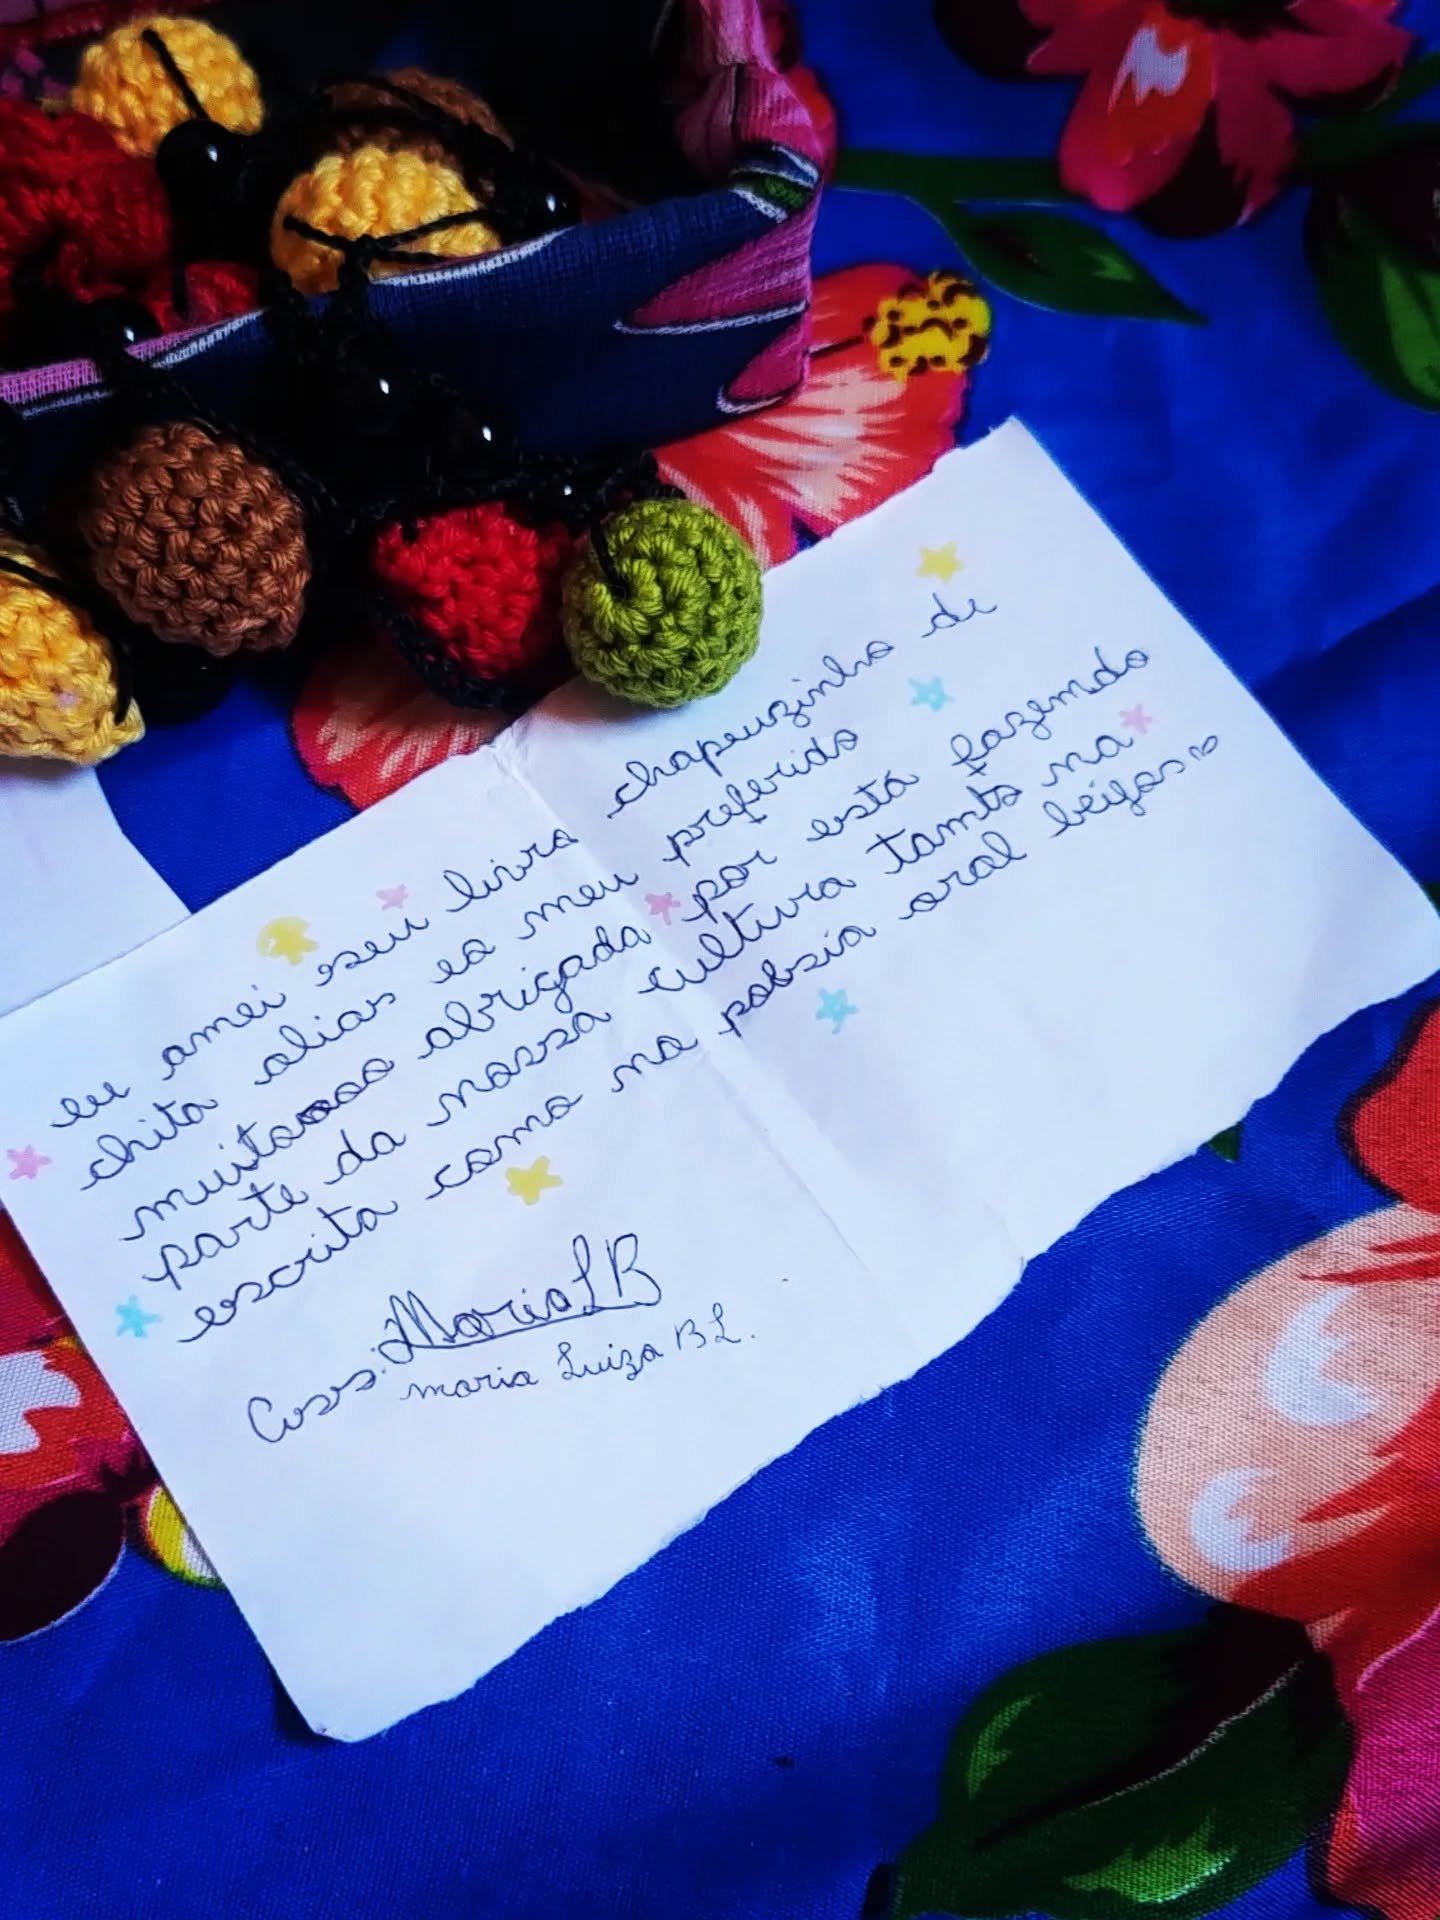 eu amei seu livro chapeuzinho de
chita alias é o meu preferido
muitoooo obrigada por está fazendo
parte da nossa cultura tanto na
escrita como na pobsia oral beijos
Ass: Maria LB
maria Luiza B L.